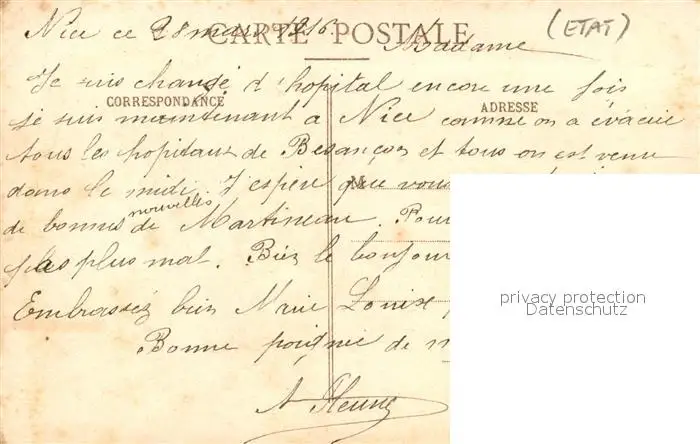 Nice ce 28 mars 1916.
CARTE POSTALE
(ETAT)
Madame
Je suis changé d'hopital encore une fois
CORRESPONDANCE
ADRESSE
je suis maintenant a Nice comme on a évacué
tous les hopitaux de Besançon et tous on est venu
dans le midi. J'espère que vous
M
de bonnes nouvelles de Martineau. Pour
pas plus mal. Bien le bonjour
Embrassez bien Marie Louise
privacy protection
Datenschutz
Bonne poignie de m
A Fleury